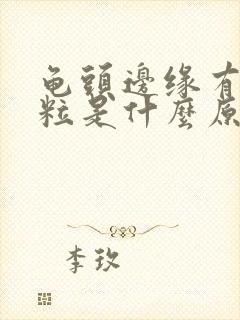 龟頭邊缘有
粒是什麼原
李玫